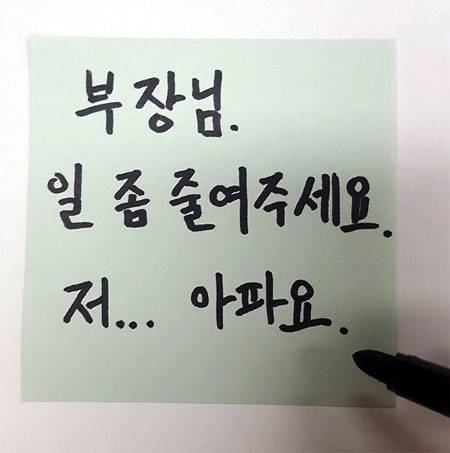 부장님.
일 좀 줄여주세요.
저... 아파요.